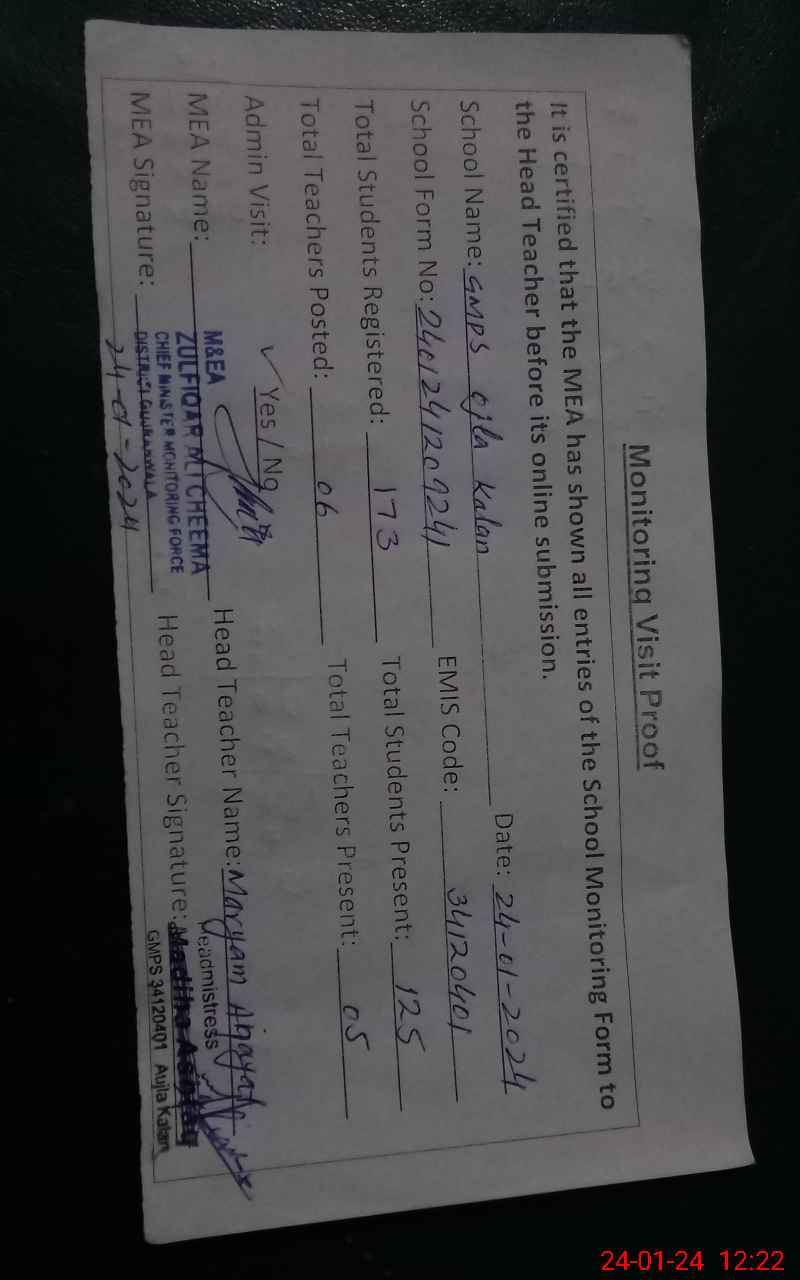 Monitoring Visit Proof
It is certified that the MEA has shown all entries of the School Monitoring Form to
the Head Teacher before its online submission.
School Name: GMPS ojla Kalan Date: 24-01-2024
School Form No: 2401241209241 EMIS Code: 34120401
Total Students Registered: 173 Total Students Present: 125
Total Teachers Posted: 06 Total Teachers Present: 05
Admin Visit: ✓ Yes / No
MEA Name: Head Teacher Name: Maryam
M&EA
ZULFIQAR ALI CHEEMA
CHIEF MINISTER MONITORING FORCE
DISTRICT GUJRANWALA
MEA Signature: Head Teacher Signature:
24-01-2024
Headmistress
Madiha
GMPS 34120401 Aujla Kalan
24-01-24 12:22